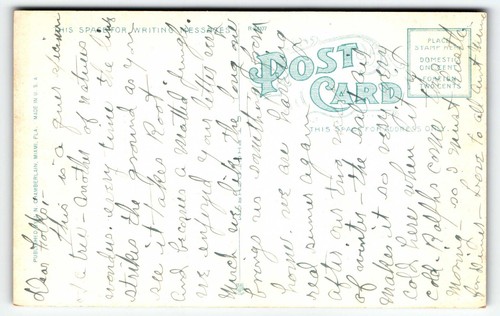 THIS SPACE FOR WRITING MESSAGES
POST CARD
PLACE
STAMP HERE
DOMESTIC
ONE CENT
FOREIGN
TWO CENTS
THIS SPACE FOR ADDRESS ONLY
CHAMBERLIN, MIAMI, FLA. MADE IN U.S.A.
Dear Folks:-
This is a queer specimen
of a tree - another of natures
wonders. every time the limb
strikes the ground as you
see it takes Root -
and becomes a matted thing.
we enjoyed your letter very
much we like the long one
brings us something from
home. we are having
real summer again
after our two days
of winter - the damp air
makes it so very very
cold here when it is
cold. Ralphs come
morning - so I must
for dinner - Love to all